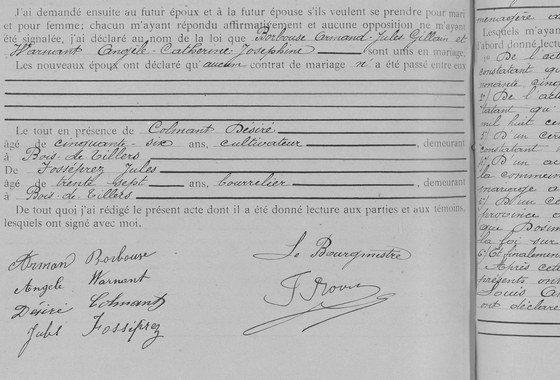 J'ai demandé ensuite au futur époux et à la future épouse s'ils veulent se prendre pour mari
et pour femme; chacun m'ayant répondu affirmativement et aucune opposition ne m'ayant
été signalée, j'ai déclaré au nom de la loi que Borbouse Armand-Jules Gillain et
Warnant Angèle-Catherine-Joséphine sont unis en mariage.
Les nouveaux époux ont déclaré qu'aucun contrat de mariage n'a été passé entre eux
Le tout en présence de Colmant Désiré
âgé de cinquante-six ans, cultivateur, demeurant
à Bois-de-Villers
De Fosséprez Jules
âgé de trente sept ans, bourrelier, demeurant
à Bois-de-Villers
De tout quoi j'ai rédigé le présent acte dont il a été donné lecture aux parties et aux témoins,
lesquels ont signé avec moi.
Arman Borbouse
Angèle Warnant
Désiré Colmant
Jules Fosséprez
Le Bourgmestre
ménagère
Lesquels m'ayant
d'abord donné lectu
1° De l'act
constatant qu
2) De l'acte
mil huit ce
5) D'un cer
constatant
4) D'un au
la commune
mariage a
6) D'un ce
province
la foi sur
6) Et finalemen
Après cet
présents ont
Louis
ont déclaré